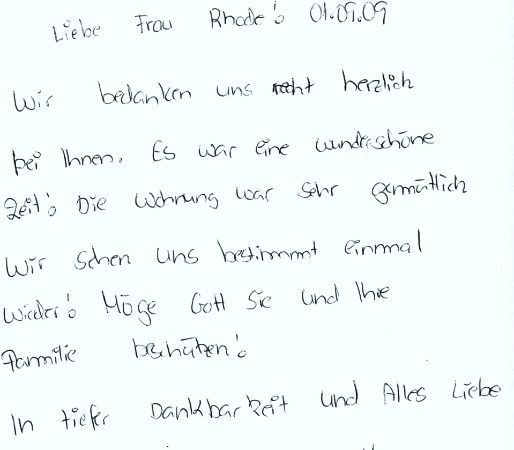 Liebe Frau Rhode! 01.09.09
Wir bedanken uns recht herzlich
bei Ihnen. Es war eine wunderschöne
Zeit! Die Wohnung war sehr gemütlich
Wir sehen uns bestimmt einmal
wieder! Möge Gott Sie und Ihre
Familie beschützen!
In tiefer Dankbarkeit und Alles Liebe